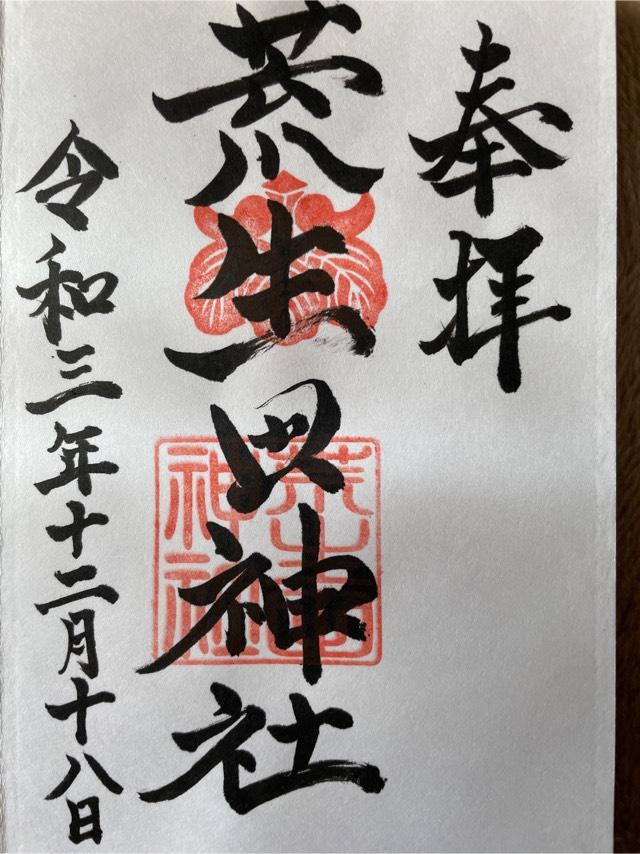 奉拝
荒生田神社
荒生田神社
令和三年十二月十八日